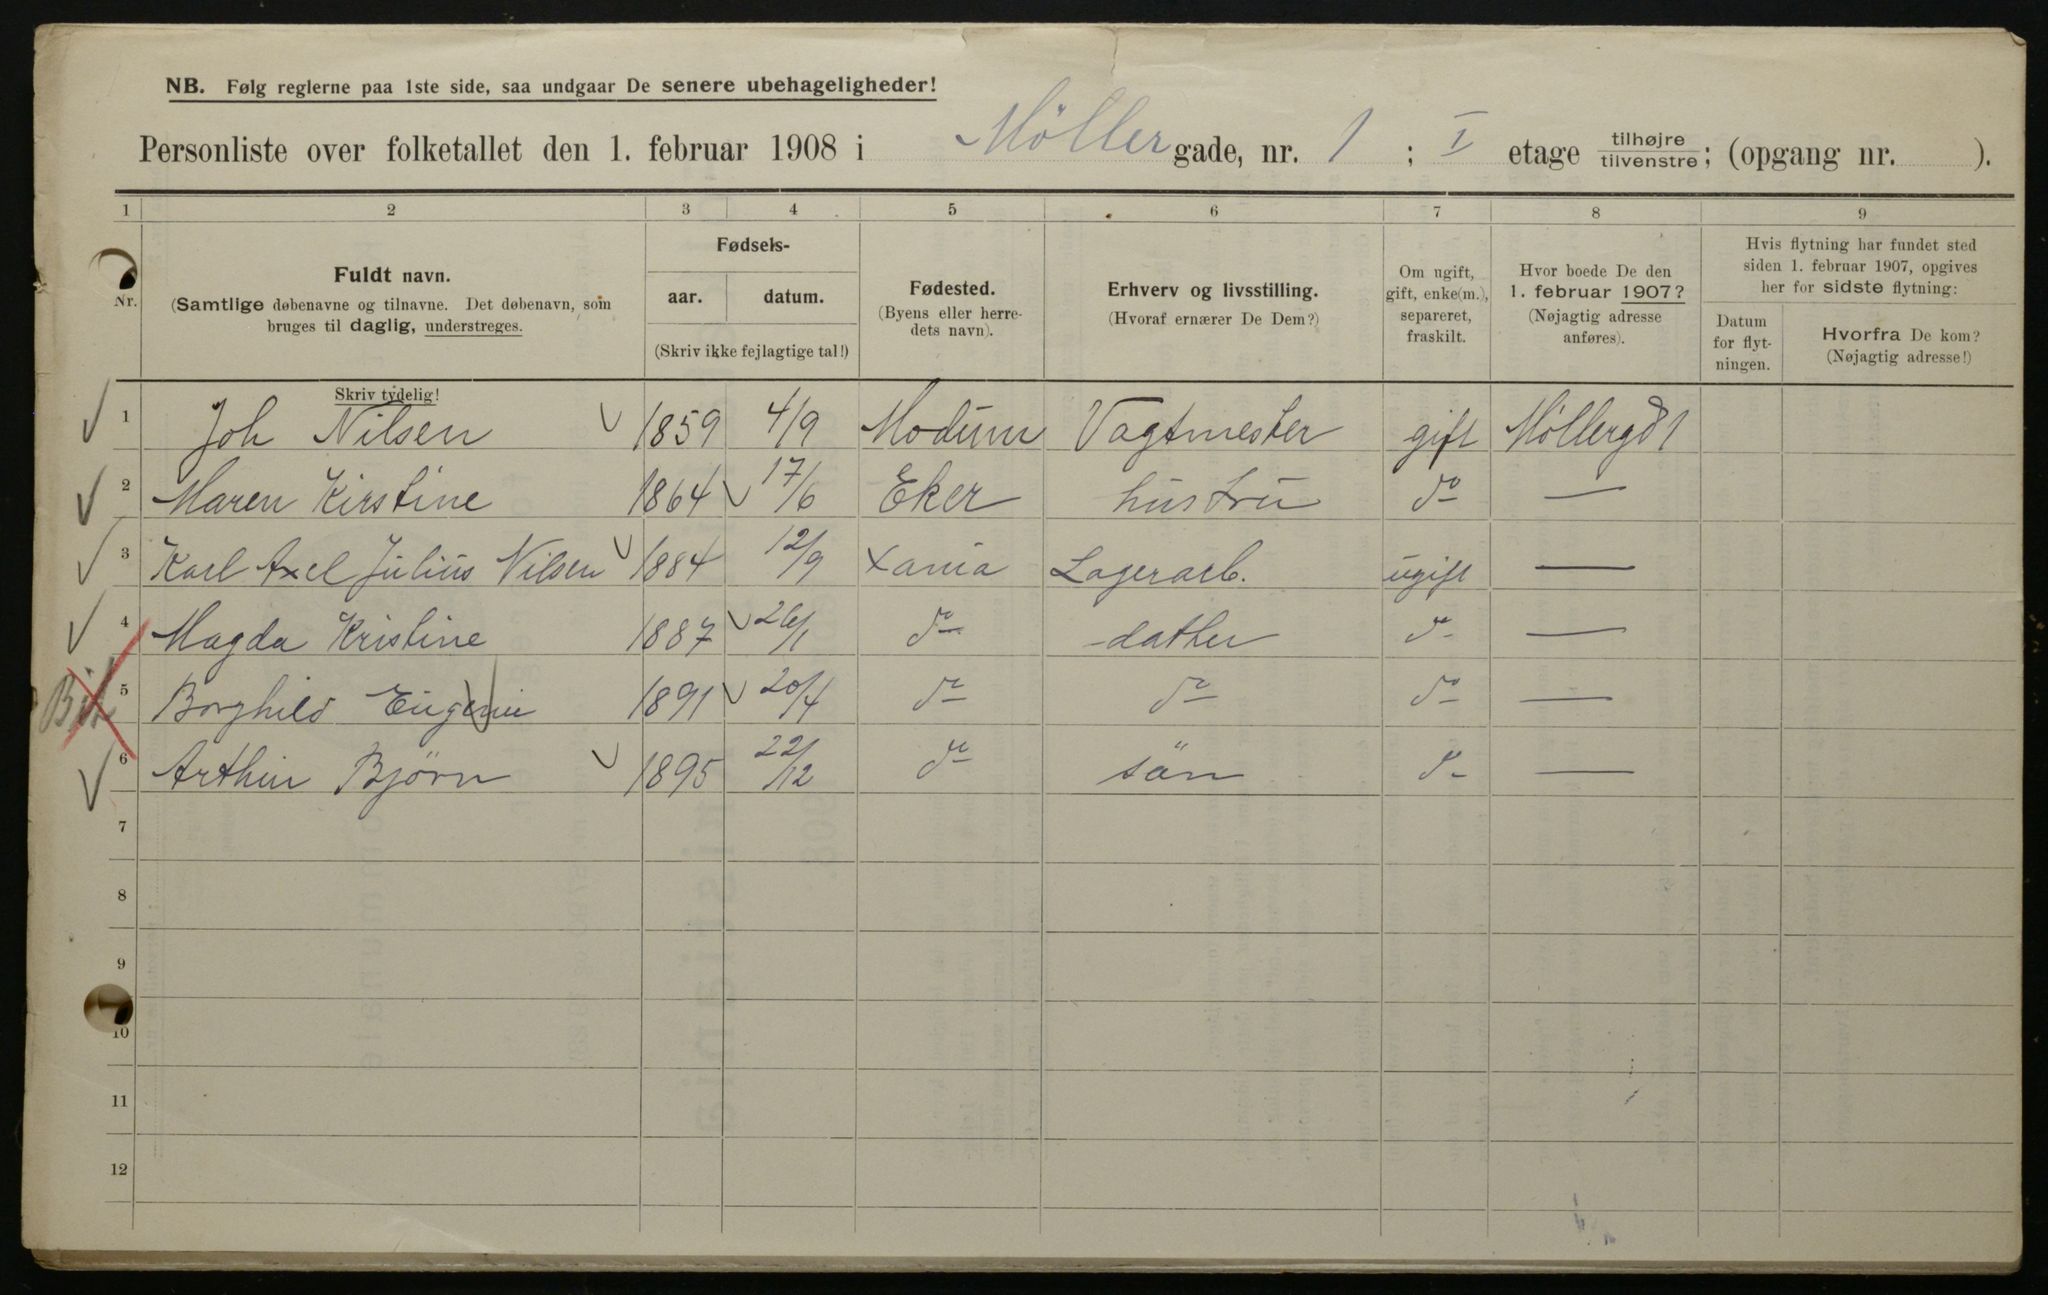 NB. Følg reglerne paa 1ste side, saa undgaar De senere ubehageligheder!
Personliste over folketallet den 1. februar 1908 i Möller gade, nr. 1 ; I etage tilhøjre tilvenstre; (opgang nr. ).
1 2 3 4 5 6 7 8 9
Nr.
Fuldt navn.
(Samtlige døbenavne og tilnavne. Det døbenavn, som
bruges til daglig, understreges.
Skriv tydelig!
Fødsels-
aar. datum.
(Skriv ikke fejlagtige tal!)
Fødested.
(Byens eller herre-
dets navn).
Erhverv og livsstilling.
(Hvoraf ernærer De Dem?)
Om ugift,
gift, enke(m.),
separeret,
fraskilt.
Hvor boede De den
1. februar 1907?
(Nøjagtig adresse
anføres).
Hvis flytning har fundet sted
siden 1. februar 1907, opgives
her for sidste flytning:
Datum
for flyt-
ningen.
Hvorfra De kom?
(Nøjagtig adresse!)
1 Joh Nilsen 1859 4/9 Modum Vagtmester gift Möllergd 1
2 Maren Kirstine 1864 17/6 Eker hustru do —
3 Karl Axel Julius Nilsen 1884 12/9 Xania Lagerarb. ugift —
4 Magda Kristine 1887 26/1 do datter do —
5 Borghild Eugenie 1891 20/4 do do do —
6 Arthur Björn 1895 22/12 do sön do —
7
8
9
10
11
12